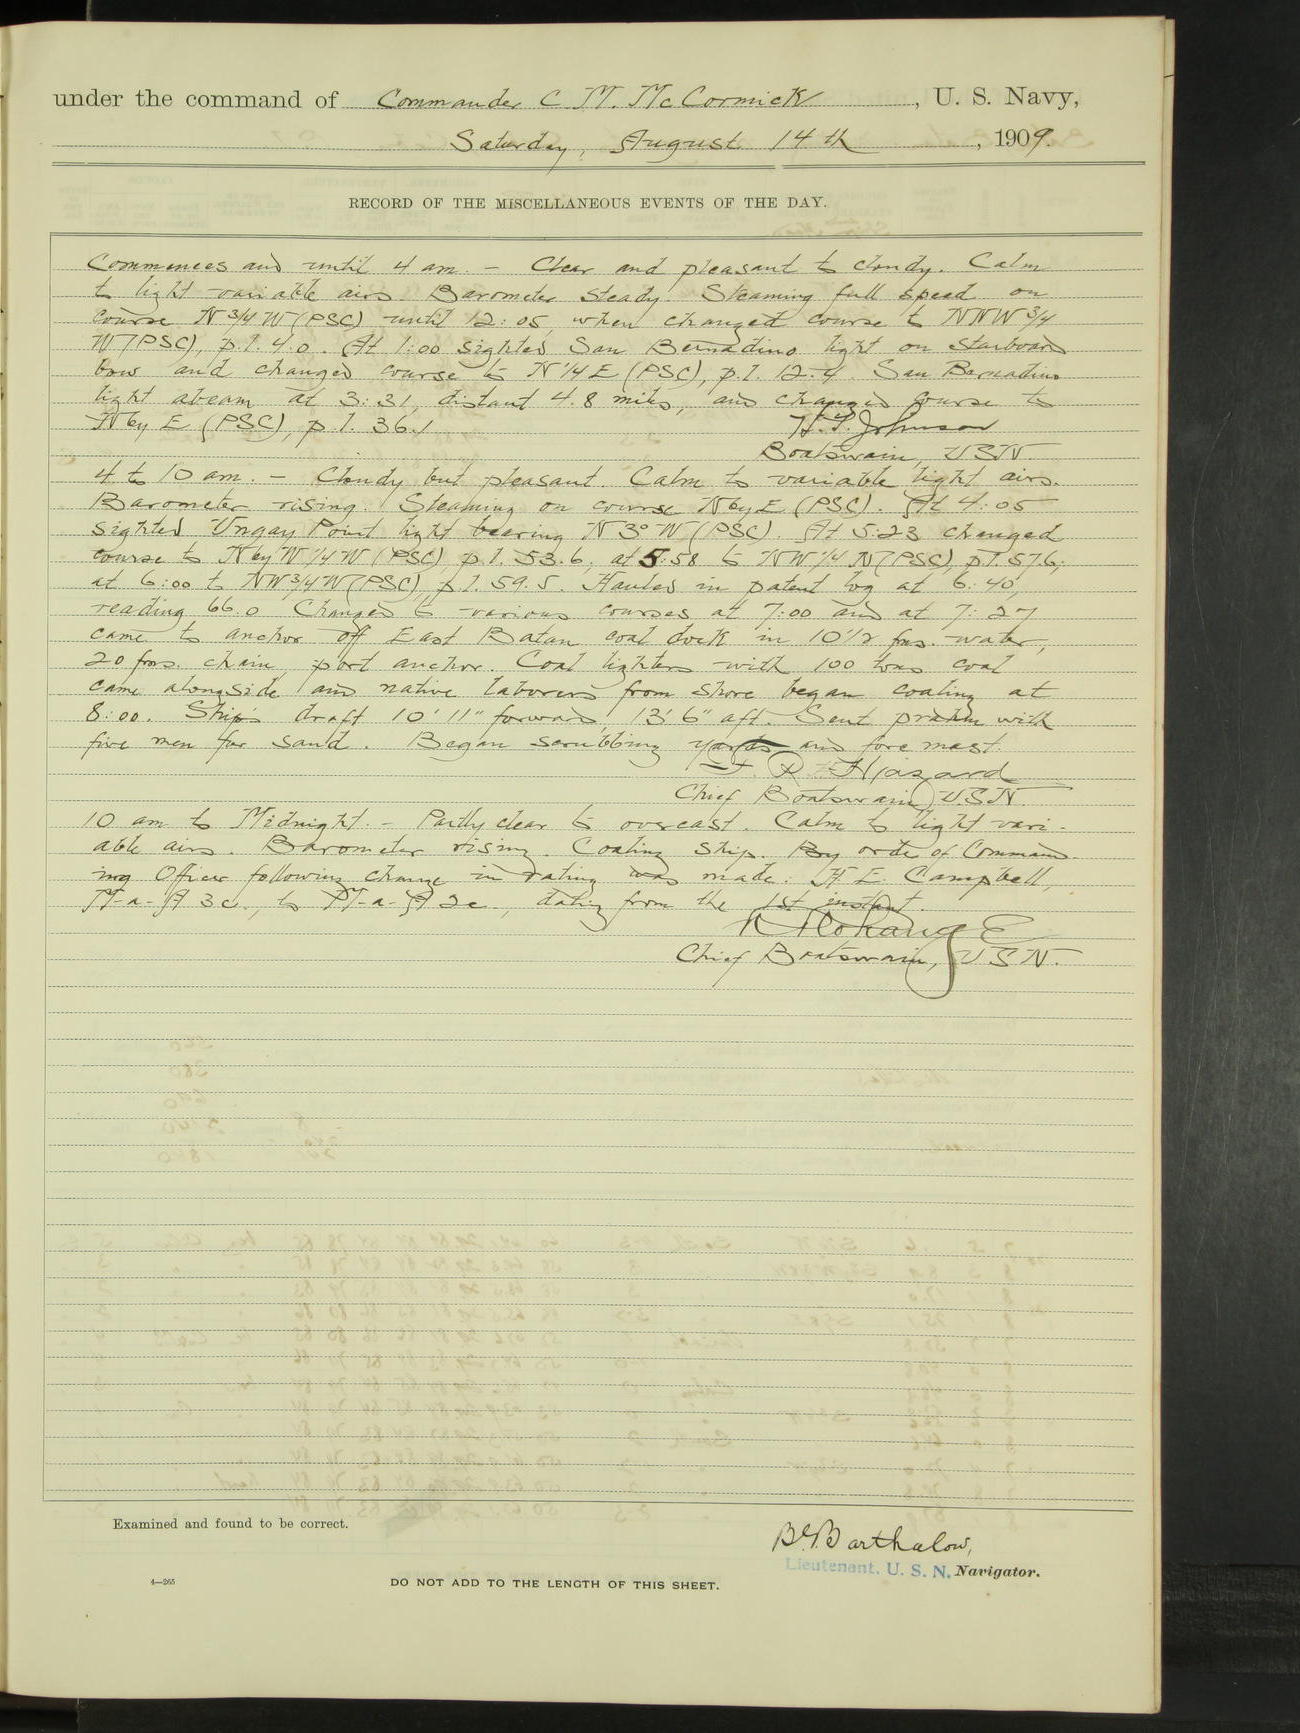 under the command of Commander C. M. McCormick, U. S. Navy,
Saturday, August 14th, 1909.
RECORD OF THE MISCELLANEOUS EVENTS OF THE DAY.
Commences and until 4 am. – Clear and pleasant to cloudy. Calm
to light variable airs. Barometer steady. Steaming full speed on
course N 3/4 W (PSC) until 12:05, when changed course to NNW 3/4
W (PSC), p.l. 4.0. At 1:00 sighted San Bernadino light on starboard
bow and changed course to N 1/4 E (PSC), p.l. 12.4. San Bernadino
light abeam at 3:31, distant 4.8 miles, and changed course to
N by E (PSC), p.l. 36.1
H. T. Johnson
Boatswain, USN.
4 to 10 am. – Cloudy but pleasant. Calm to variable light airs.
Barometer rising. Steaming on course N by E (PSC). At 4:05
sighted Ungay Point light bearing N 3° W (PSC). At 5:23 changed
course to N by W 1/4 W (PSC), p.l. 53.6, at 5:58 to NW 1/4 N (PSC), p.l. 57.6;
at 6:00 to NW 3/4 W (PSC), p.l. 59.5. Hauled in patent log at 6:40,
reading 66.0 Changed to various courses at 7:00 and at 7:27
came to anchor off East Batan coal dock in 10 1/2 fms. water,
20 fms. chain, port anchor. Coal lighters with 100 tons coal
came alongside and native laborers from shore began coaling at
8:00. Ship's draft 10' 11" forward, 13' 6" aft. Sent praam with
five men for sand. Began scrubbing yards and fore mast.
Hazard
Chief Boatswain, U.S.N.
10 am to Midnight. – Partly clear to overcast. Calm to light vari-
able airs. Barometer rising. Coaling ship. By order of Command-
ing Officer following change in rating was made: H. E. Campbell,
M-a-A 3c., to M-a-A 2c., dating from the 1st instant.
Chief Boatswain, U S N.
Examined and found to be correct.
Barthalow,
Lieutenant, U. S. N. Navigator.
4—265
DO NOT ADD TO THE LENGTH OF THIS SHEET.